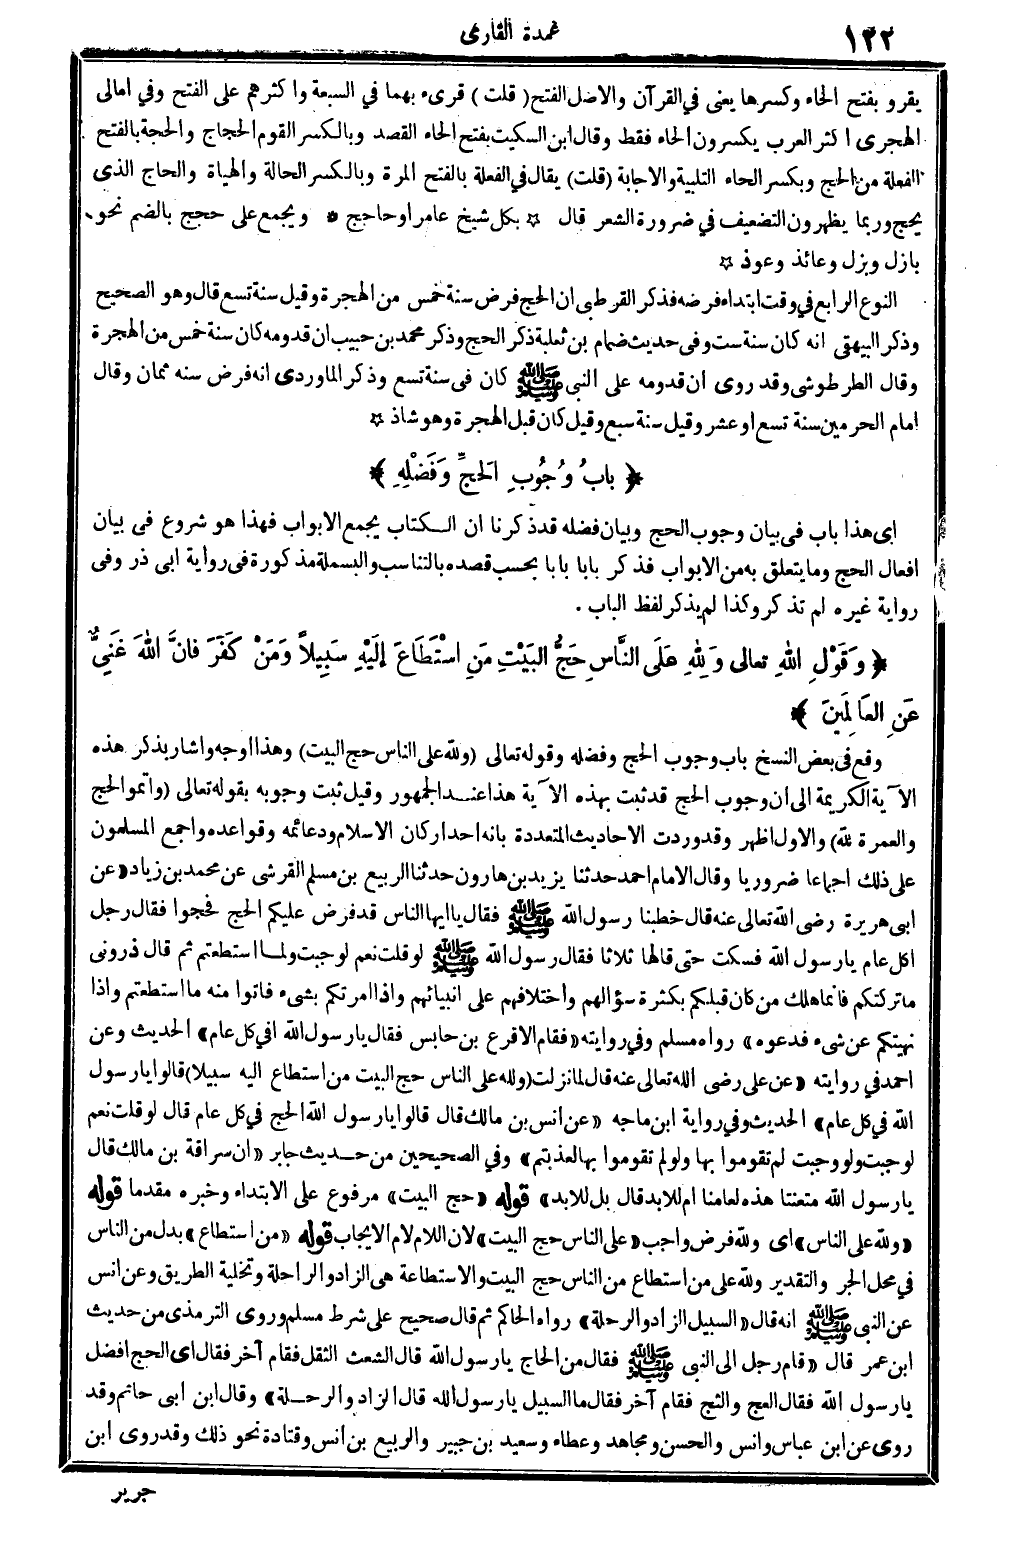 ١٢٢
عمدة القارى
يقرو بفتح الحاء وكسرها يعنى في القرآن والاصل الفتح ( قلت ) قرىء بهما في السبعة واكثرهم على الفتح وفي امالى
الهجرى اكثر العرب يكسرون الحاء فقط وقال ابن السكيت بفتح الحاء القصد وبالكسر القوم الحجاج والحجة بالفتح
الفعلة من الحج وبكسر الحاء التلبية والاجابة (قلت) يقال في الفعلة بالفتح المرة وبالكسر الحالة والهياة والحاج الذى
يحج وربما يظهرون التضعيف في ضرورة الشعر قال ☆ بكل شيخ عامر اوحاجج * ويجمع على حجج بالضم نحو
بازل وبزل وعائذ وعوذ ☆
النوع الرابع في وقت ابتداء فرضه فذكر القرطبى ان الحج فرض سنة خمس من الهجرة وقيل سنة تسع قال وهو الصحيح
وذكر البيهقى انه كان سنة ست وفى حديث ضمام بن ثعلبة ذكر الحج وذكر محمد بن حبيب ان قدومه كان سنة خمس من الهجرة
وقال الطرطوشى وقد روى ان قدومه على النبى ﷺ كان فى سنة تسع وذكر الماوردى انه فرض سنه ثمان وقال
امام الحرمين سنة تسع او عشر وقيل سنة سبع وقيل كان قبل الهجرة وهو شاذ ☆
﴿ بابُ وُجُوبِ الحَجِّ وَفَضْلِهِ ﴾
اى هذا باب فى بيان وجوب الحج وبيان فضله قد ذكرنا ان الكتاب يجمع الابواب فهذا هو شروع فى بيان
افعال الحج وما يتعلق به من الابواب فذكر بابا بابا بحسب قصده بالتناسب والبسملة مذكورة فى رواية ابى ذر وفى
رواية غيره لم تذكر وكذا لم يذكر لفظ الباب .
﴿ وَقَوْلِ اللهِ تعالى وَلِلهِ عَلَى النَّاسِ حَجُّ البَيْتِ مَنِ اسْتَطَاعَ إِلَيْهِ سَبِيلاً وَمَنْ كَفَرَ فانَّ اللهَ غَنِيٌّ
عَنِ العَالَمِينَ ﴾
وقع فى بعض النسخ باب وجوب الحج وفضله وقوله تعالى (ولله على الناس حج البيت) وهذا اوجه واشار بذكر هذه
الآية الكريمة الى ان وجوب الحج قد ثبت بهذه الآية هذا عند الجمهور وقيل ثبت وجوبه بقوله تعالى (واتموا الحج
والعمرة لله) والاول اظهر وقد وردت الاحاديث المتعددة بانه احد اركان الاسلام ودعائمه وقواعده واجمع المسلمون
على ذلك اجماعا ضروريا وقال الامام احمد حدثنا يزيد بن هارون حدثنا الربيع بن مسلم القرشى عن محمد بن زياد «عن
ابى هريرة رضى الله تعالى عنه قال خطبنا رسول الله ﷺ فقال يا ايها الناس قد فرض عليكم الحج فحجوا فقال رجل
اكل عام يا رسول الله فسكت حتى قالها ثلاثا فقال رسول الله ﷺ لو قلت نعم لوجبت ولما استطعتم ثم قال ذرونى
ما تركتكم فانما هلك من كان قبلكم بكثرة سؤالهم واختلافهم على انبيائهم واذا امرتكم بشىء فاتوا منه ما استطعتم واذا
نهيتكم عن شىء فدعوه» رواه مسلم وفي روايته «فقام الاقرع بن حابس فقال يا رسول الله افي كل عام» الحديث وعن
احمد في روايته «عن على رضى الله تعالى عنه قال لما نزلت (ولله على الناس حج البيت من استطاع اليه سبيلا) قالوا يا رسول
الله في كل عام» الحديث وفي رواية ابن ماجه «عن أنس بن مالك قال قالوا يا رسول الله الحج في كل عام قال لو قلت نعم
لوجبت ولو وجبت لم تقوموا بها ولو لم تقوموا بها لعذبتم» وفي الصحيحين من حديث جابر «ان سراقة بن مالك قال
يا رسول الله متعتنا هذه لعامنا ام للابد قال بل للابد» قوله «حج البيت» مرفوع على الابتداء وخبره مقدما قوله
«ولله على الناس» اى ولله فرض واجب «على الناس حج البيت» لان اللام لام الايجاب قوله «من استطاع» بدل من الناس
في محل الجر والتقدير ولله على من استطاع من الناس حج البيت والاستطاعة هى الزاد والراحلة وتخلية الطريق وعن انس
عن النبى ﷺ انه قال «السبيل الزاد والرحلة» رواه الحاكم ثم قال صحيح على شرط مسلم وروى الترمذى من حديث
ابن عمر قال «قام رجل الى النبى ﷺ فقال من الحاج يا رسول الله قال الشعث الثقل فقام آخر فقال اى الحج افضل
يا رسول الله فقال العج والثج فقام آخر فقال ما السبيل يا رسول الله قال الزاد والرحلة» وقال ابن ابى حاتم وقد
روى عن ابن عباس وانس والحسن ومجاهد وعطاء وسعيد بن جبير والربيع بن انس وقتادة نحو ذلك وقد روى ابن
جرير